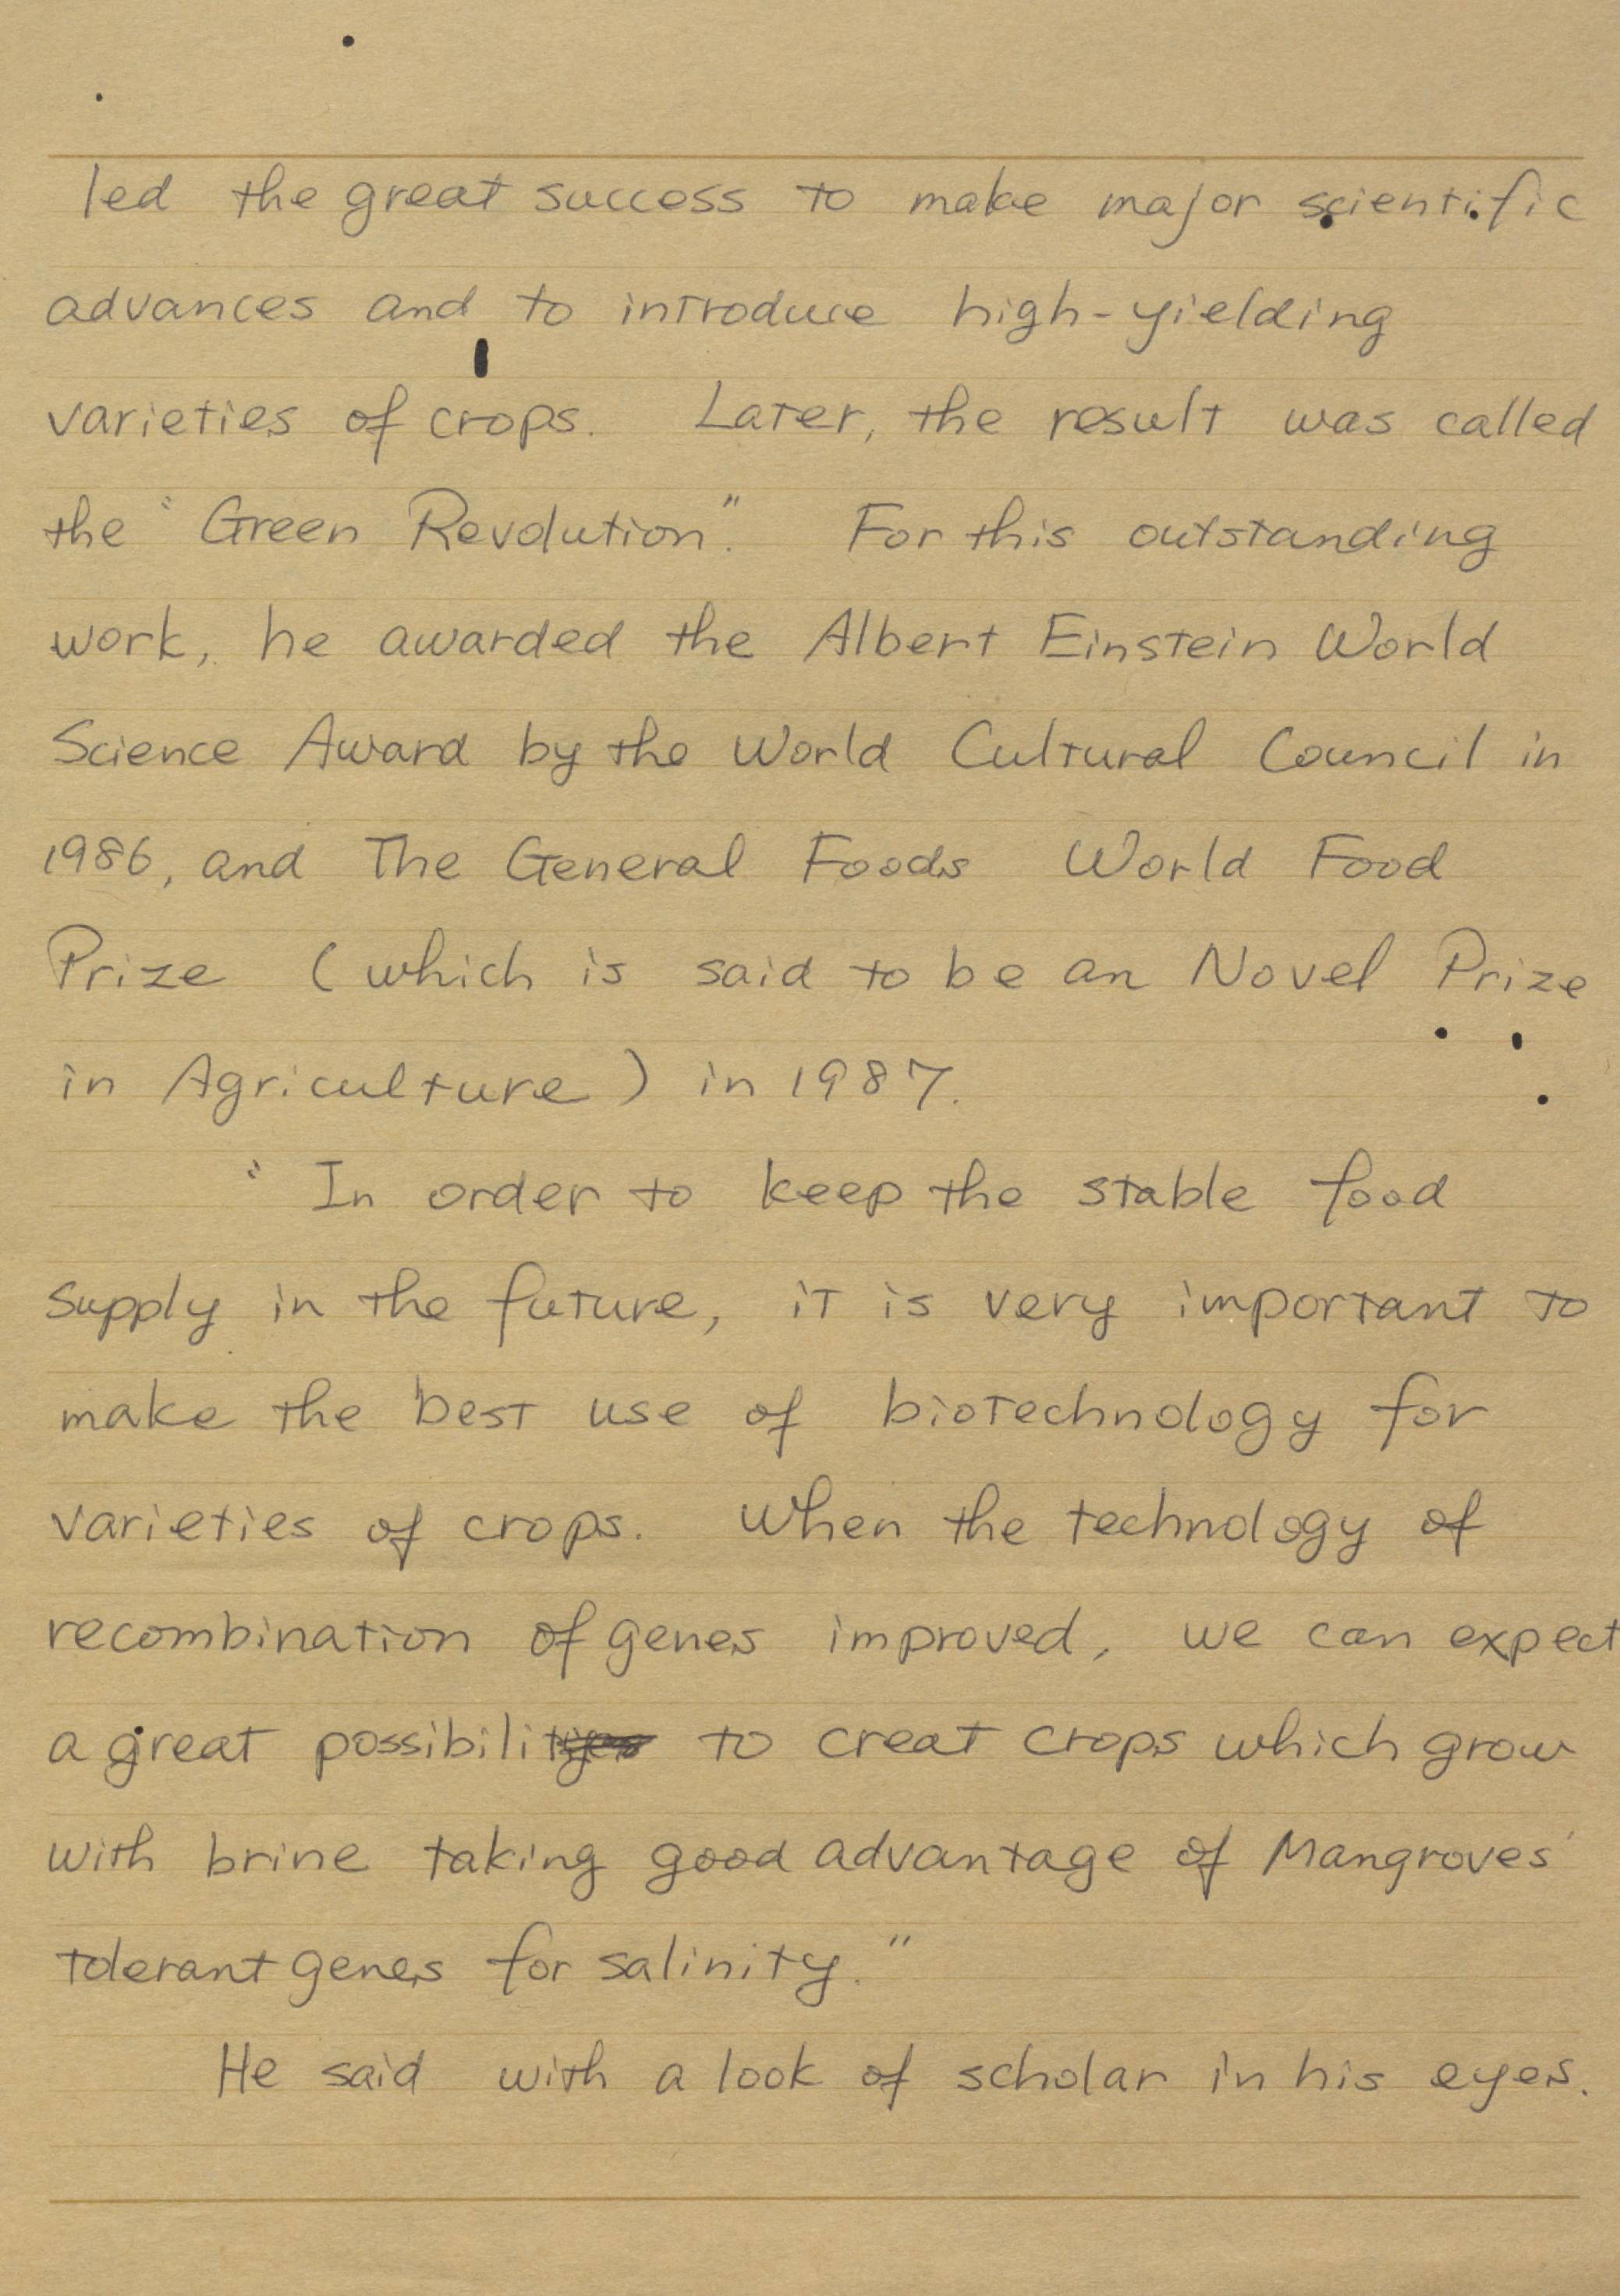 led the great success to make major scientific
advances and to introduce high-yielding
varieties of crops. Later, the result was called
the "Green Revolution". For this outstanding
work, he awarded the Albert Einstein World
Science Award by the World Cultural Council in
1986, and The General Foods World Food
Prize (which is said to be an Novel Prize
in Agriculture) in 1987.
"In order to keep the stable food
supply in the future, it is very important to
make the best use of biotechnology for
varieties of crops. When the technology of
recombination of genes improved, we can expect
a great possibility to creat crops which grow
with brine taking good advantage of Mangroves'
tolerant genes for salinity."
He said with a look of scholar in his eyes.